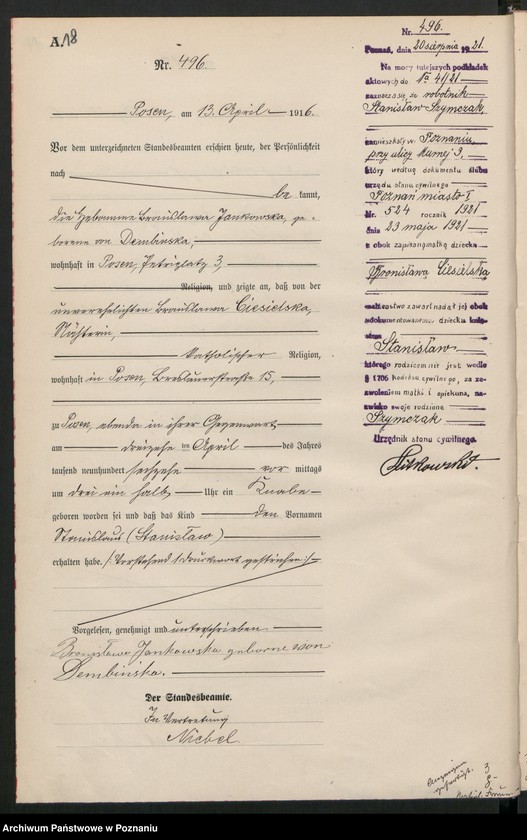 A. 18
Nr. 496.
Posen, am 13. April 1916.
Vor dem unterzeichneten Standesbeamten erschien heute, der Persönlichkeit
nach
be kannt,
die Hebamme Bronislawa Jankowska, ge-
borene von Dembinska,
wohnhaft in Posen, Petriplatz 3,
Religion, und zeigte an, daß von der
unverehelichten Bronislawa Ciesielska,
Nähterin,
katholischer Religion,
wohnhaft in Posen, Breslauerstraße 15,
zu Posen, ebenda in ihrer Gegenwart
am dreizehn ten April des Jahres
tausend neunhundert sechzehn vor mittags
um drei ein halb Uhr ein Knabe
geboren worden sei und daß das Kind den Vornamen
Stanislaus (Stanisław)
erhalten habe. /: Vorstehend 1 Druckwort gestrichen :/
Vorgelesen, genehmigt und unterschrieben
Bronisława Jankowska geborne von
Dembińska.
Der Standesbeamte.
In Vertretung
Niebel
Nr. 496.
Poznań, dnia 20 sierpnia 1921.
Na mocy tutejszych podkładek
aktowych do Ia 41/21
zaznacza się że robotnik
Stanisław Szymczak,
zamieszkały w Poznaniu,
przy ulicy Kurnej 3,
który według dokumentu ślubu
urzędu stanu cywilnego
Poznań miasto I
Nr. 524 rocznik 1921
dnia 23 maja 1921
z obok zapisaną matką dziecka
Bronisławą Ciesielską
małżeństwo zawarł nadał jej obok
udokumentowanemu dziecku imie-
Stanisław
którego rodzicem nie jest wedle
§ 1706 kodeksu cywilnego, za ze-
zwoleniem matki i opiekuna, na-
zwisko swoje rodzinne
Szymczak
Urzędnik stanu cywilnego.
3
8.
Archiwum Państwowe w Poznaniu